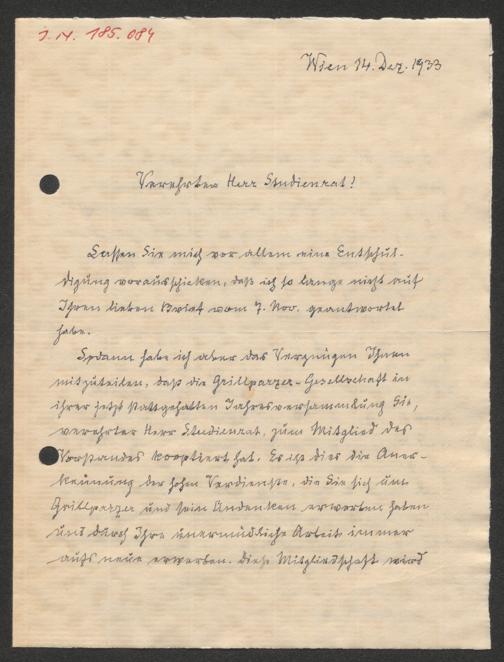 J. N. 185.084
Wien 14. Dez. 1933
Verehrter Herr Studienrat!
Lassen Sie mich vor allem eine Entschul-
digung vorausschicken, daß ich so lange nicht auf
Ihren lieben Brief vom 7. Nov. geantwortet
habe.
Sodann habe ich aber das Vergnügen Ihnen
mitzuteilen, daß die Grillparzer-Gesellschaft in
ihrer jetzt stattgehabten Jahresversammlung Sie,
verehrter Herr Studienrat, zum Mitglied des
Vorstandes kooptiert hat. Es ist dies die Aner-
kennung der hohen Verdienste, die Sie sich um
Grillparzer und sein Andenken erworben haben
und durch Ihre unermüdliche Arbeit immer
aufs neue erwerben. Diese Mitgliedschaft wird